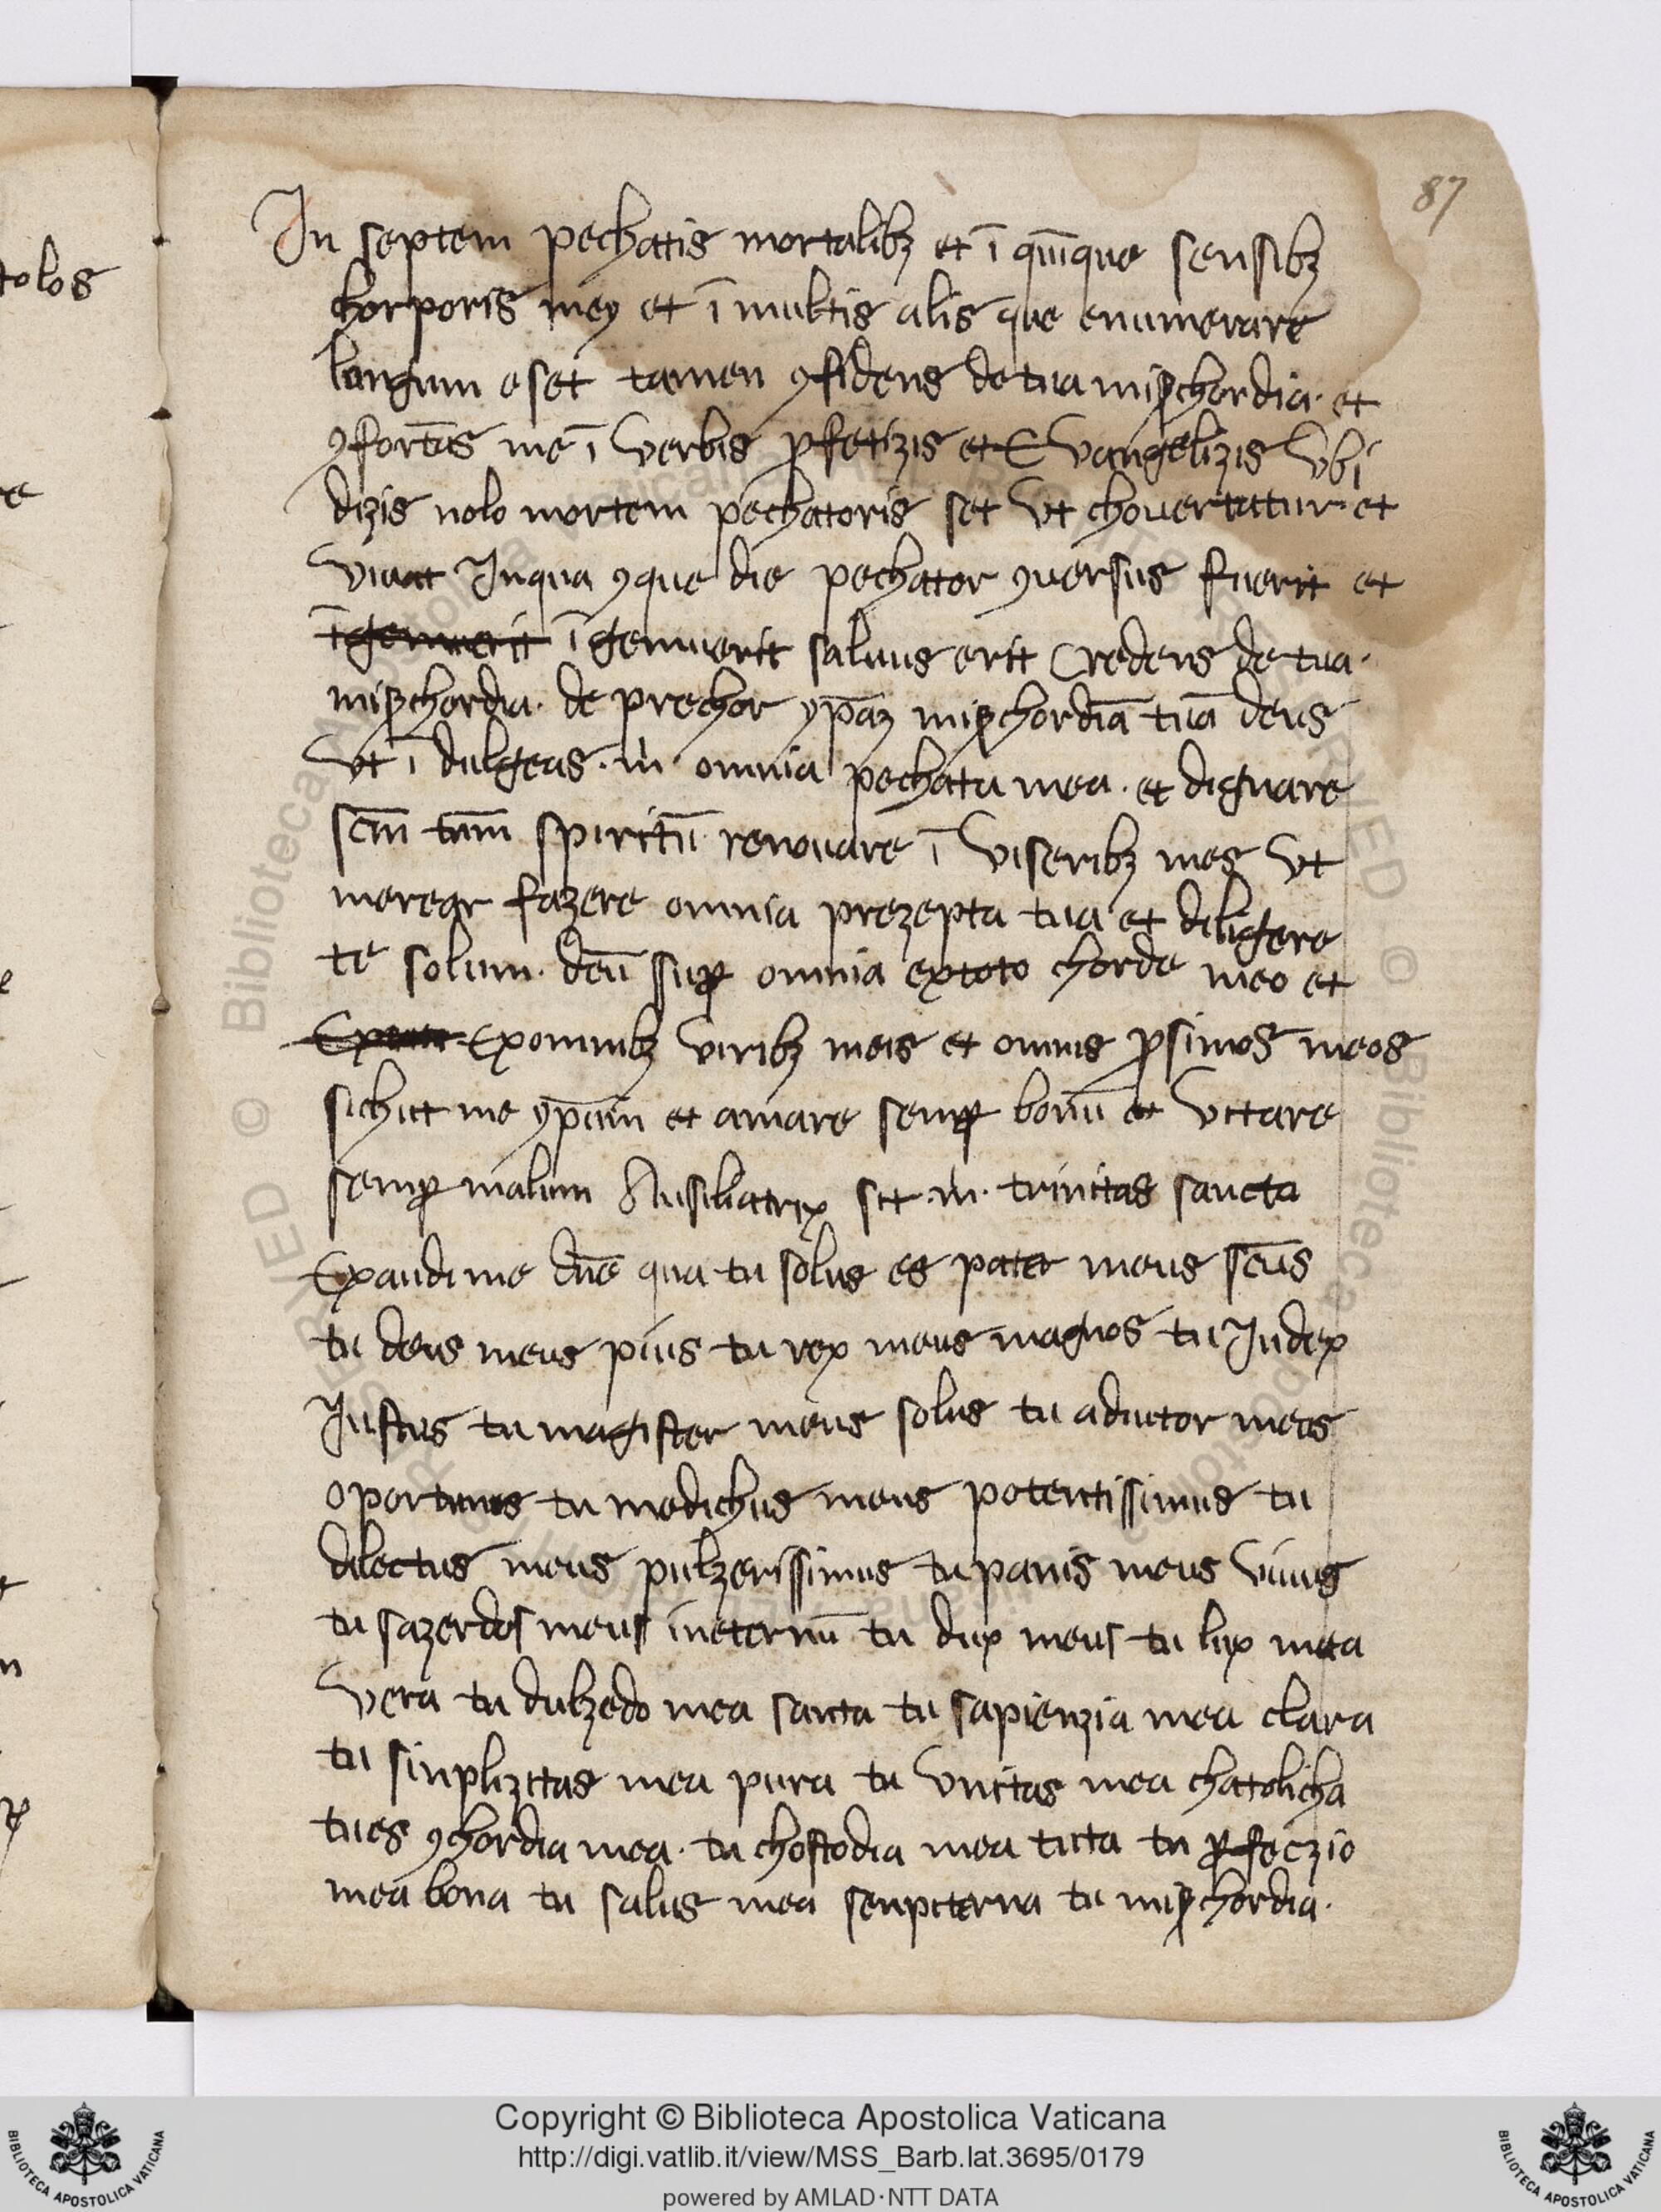 87
In septem pechatis mortalibꝫ et ī quīque sensibꝫ
chorporis mey et ī multis alis que enumerare
longum eset tamen ꝯfidens de tua miꝑchordia · et
ꝯfortās me ī verbis ꝓfetizis et Evangelizis vbi
dizis nolo mortem pechatoris set vt chouertatur · et
viuat Inqua ꝯque die pechator ꝯuersus fuerit et
īgemuerit īgemuerit saluus erit Credens de tua ·
miꝑchordia · de prechor yp̄aꝫ miꝑchordiā tuā deus
vt ī dulgeas · m̄ · omnia pechata mea · et dignare
sc̄m tuū spiritū renouare ī viseribꝫ mes vt
merear fazere omnia prezepta tua et deligere
te solum · deū suꝑ omnia ex toto chorde meo et
Ex omnibꝫ viribꝫ meis et omnis ꝓsimos meos
sichut me yp̄um et amare semꝑ bonū et vitare
semꝑ malum Ausiliatrix sit · m̄ · trinitas sancta
Exaudi me dn̄e qua tu solus es pater meus sc̄us
tu deus meus pius tu rex meus magnos tu Iudex
Iustus tu magister meus solus tu adiutor meus
oportunus tu medichus meus potentissimus tu
dilectus meus pulzerissimus tu panis meus viuus
tu sazerdos meus ineternū tu dux meus tu lux mea
vera tu dulzedo mea santa tu sapienzia mea clara
tu sinplizitas mea pura tu vnitas mea chatolicha
tu es ꝯchordia mea · tu chostodia mea tuta tu ꝓfeczio
mea bona tu salus mea senpiterna tu miꝑchordia ·
tolos
© Biblioteca Apostolica Vaticana
Copyright © Biblioteca Apostolica Vaticana
http://digi.vatlib.it/view/MSS_Barb.lat.3695/0179
powered by AMLAD·NTT DATA
BIBLIOTECA APOSTOLICA VATICANA
BIBLIOTECA APOSTOLICA VATICANA